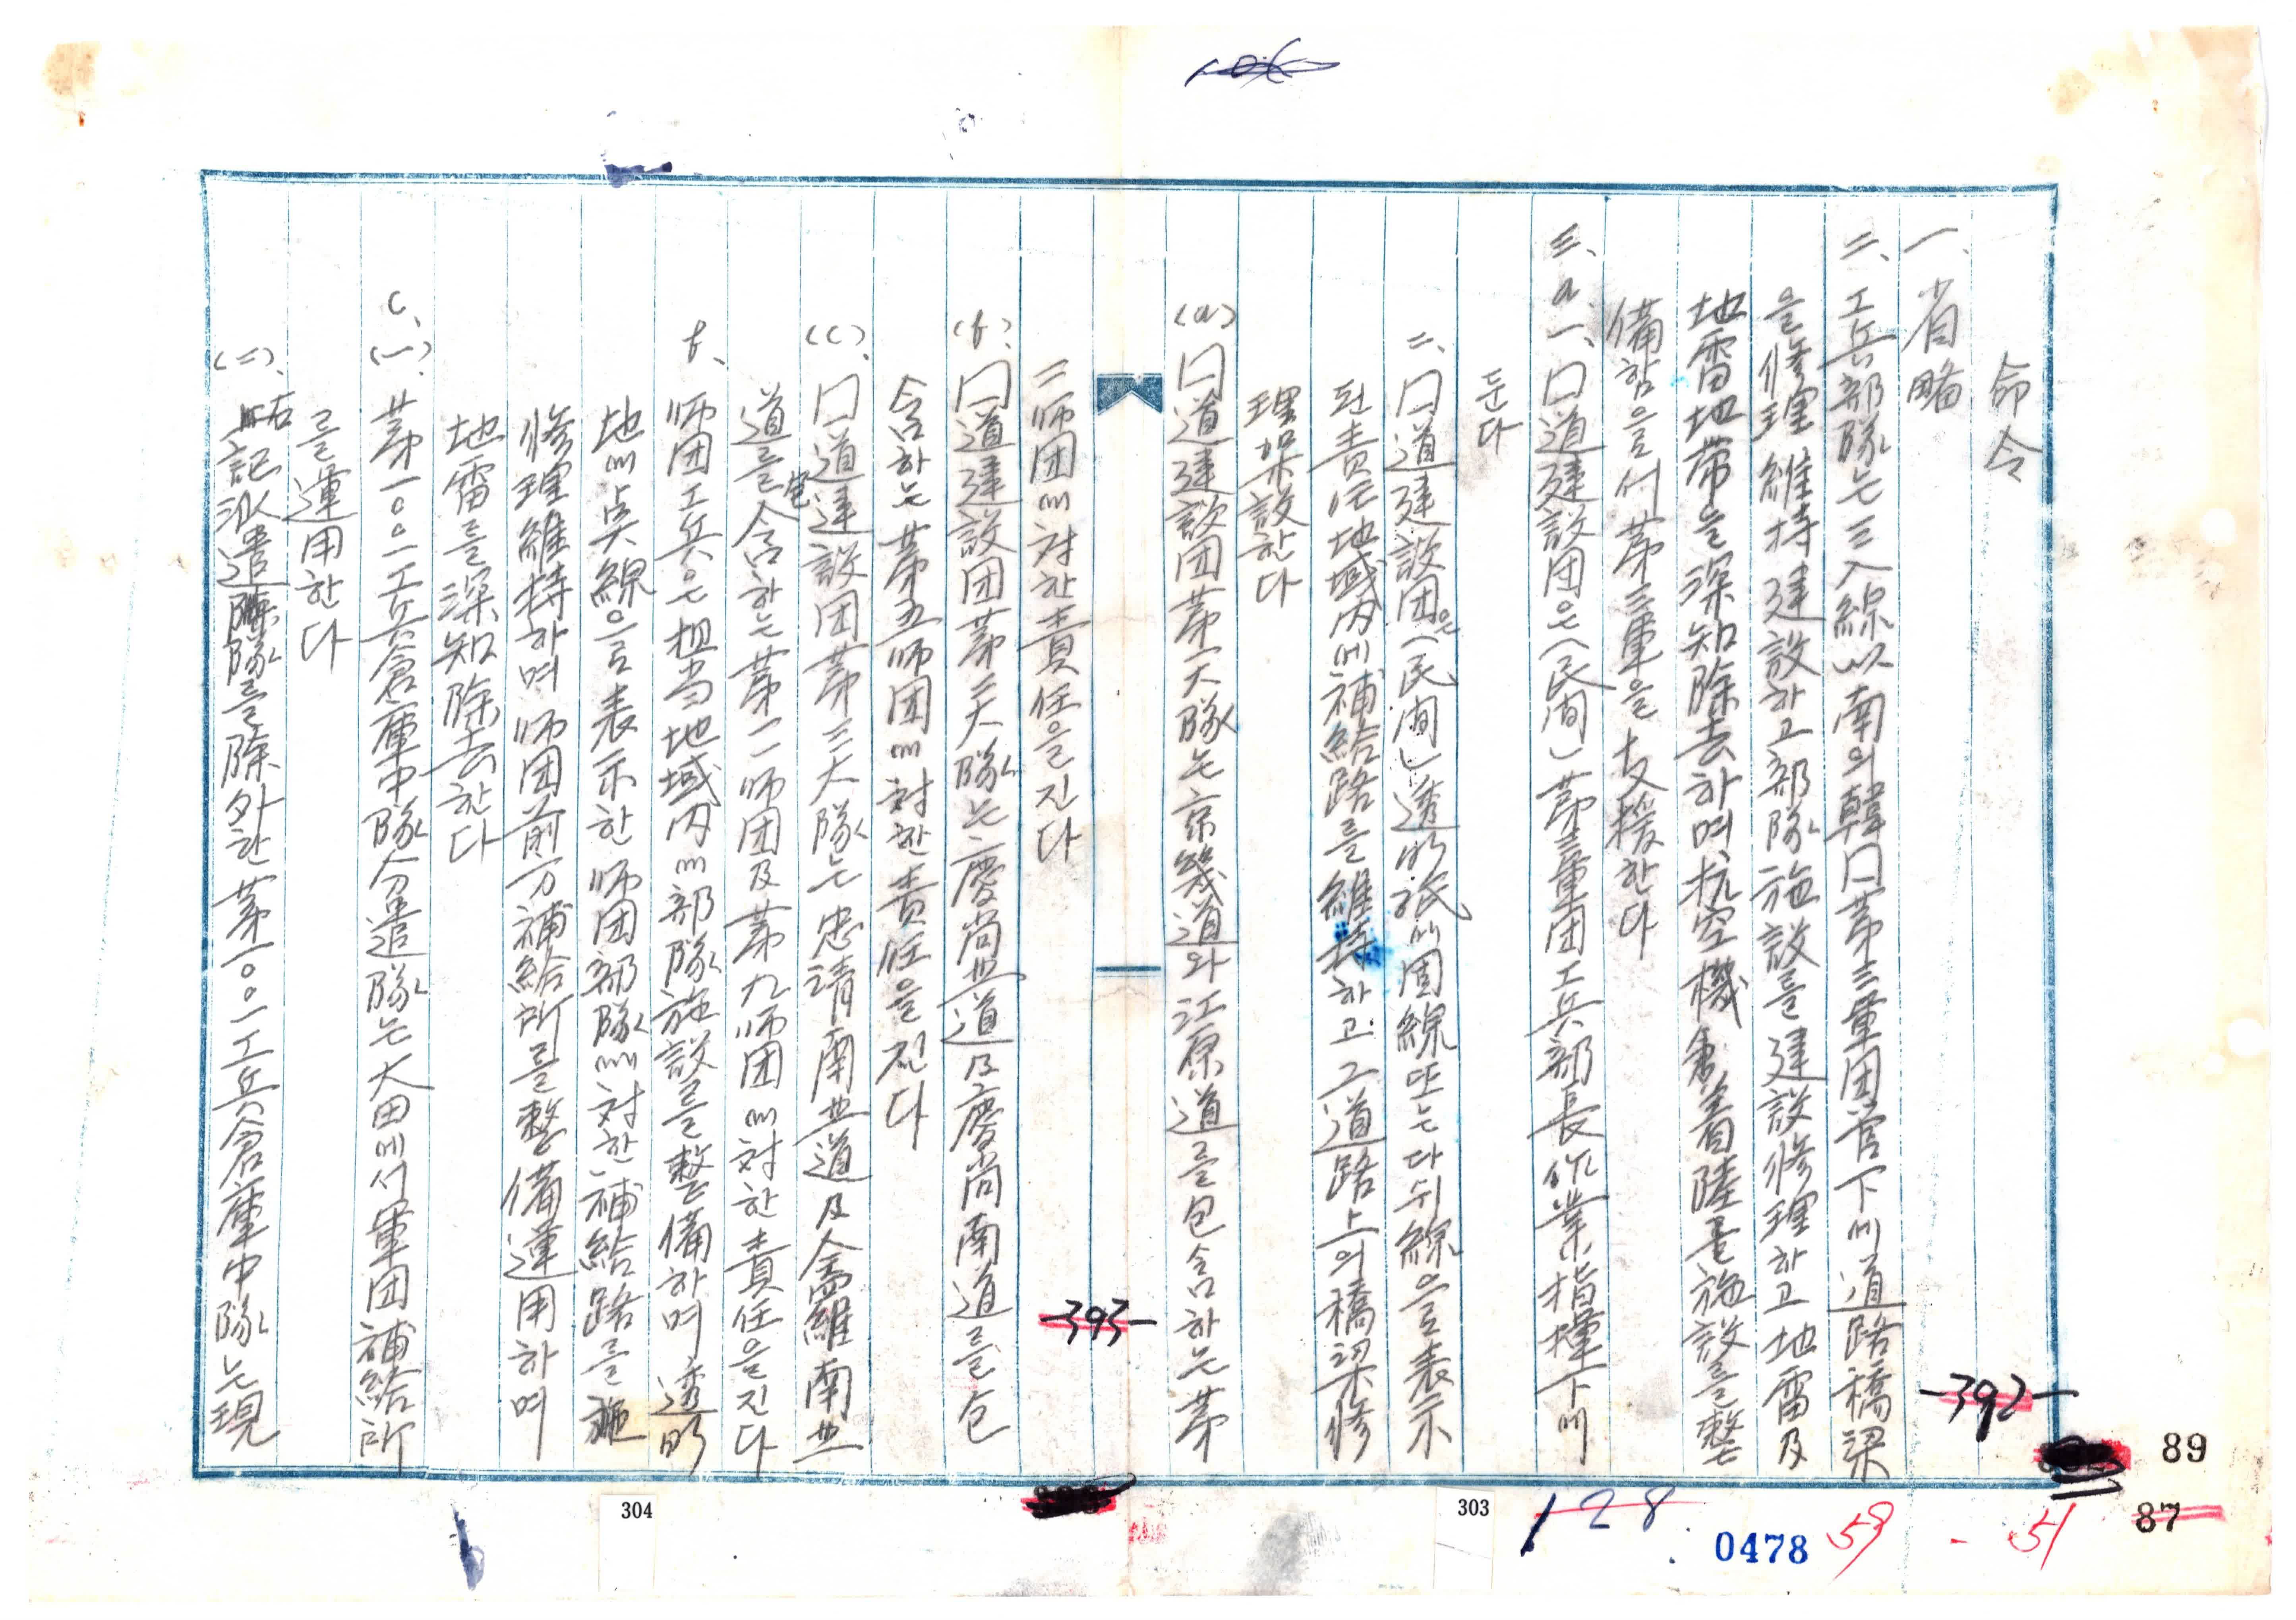 命令
一、省略
二、工兵部隊는 三八線以南의 韓口 第三軍団管下에 道路橋梁
을 修理維持建設하고 部隊施設를 建設修理하고 地雷及
地雷地帯을 深知除去하며 抗空機 着陸 施設를 整
備함을서 第三軍을 支援한다
三、a、一、口道建設団은 (民間) 第三軍団工兵部長作業指揮下에
둔다
二、口道建設団은 (民間) 透明紙에 固線 또는 다뷔線으로 表示
된 責任地域内에 補給路를 維持하고 그 道路上의 橋梁修
理架設한다
(a) 口道建設団 第一大隊는 京畿道와 江原道를 包含하는 第
二師団에 対한 責任을 진다
(b) 口道建設団 第二大隊는 慶尚北道及慶尚南道를 包
含하는 第五師団에 対한 責任을 진다
(c) 口道建設団 第三大隊는 忠清南北道及 全羅南北
道를 包含하는 第一一師団及 第九師団에 対한 責任을 진다
b、師団工兵은 担当地域内에 部隊施設를 整備하며 透明
地에 点線으로 表示한 師団部隊에 対한 補給路를
修理維持하며 師団前方補給所를 整備運用하며
地雷를 深知除去한다
c、(一)、第一〇〇一工兵倉庫中隊分遣隊는 大田에서 軍団補給所
를 運用한다
(二)、右記派遣隊를 除外한 第一〇〇一工兵倉庫中隊는 現
392
393
304
303
128
0478
59 - 51
89
87